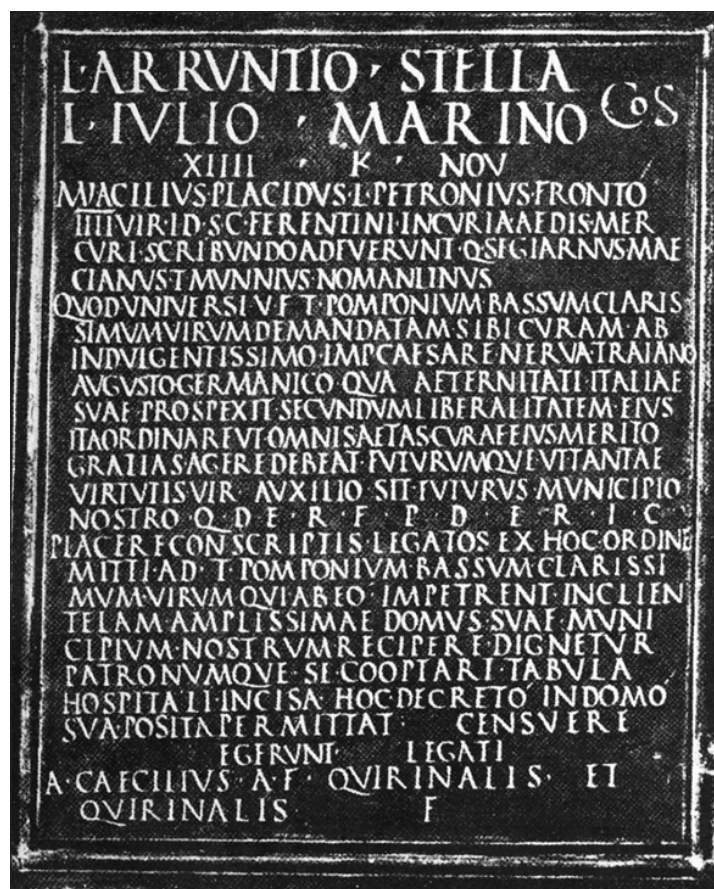 L·ARRVNTIO·STELLA
L·IVLIO·MARINO COS
XIIII·K·NOV
M·ACILIVS·PLACIDVS·L·PETRONIVS·FRONTO
IIIIVIR·I·D·S·C·FERENTINI·IN CVRIA·AEDIS·MER
CVRI·SCRIBVNDO ADFVERVNT·Q·SEGIARNVS·MAE
CIANVS·T·MVNNIVS·NOMANTINVS
QVOD VNIVERSI V F T·POMPONIVM·BASSVM CLARIS
SIMVM VIRVM DEMANDATAM SIBI CVRAM·AB
INDVLGENTISSIMO·IMP CAESARE NERVA TRAIANO
AVGVSTO GERMANICO·QVA AETERNITATI·ITALIAE
SVAE PROSPEXIT SECVNDVM LIBERALITATEM·EIVS
ITA ORDINARE VT OMNIS AETAS CVRAE EIVS MERITO
GRATIAS·AGERE DEBEAT·FVTVRVMQVE VT TANTAE
VIRTVTIS VIR AVXILIO SIT FVTVRVS MVNICIPIO
NOSTRO·Q·D·E·R·F·P·D·E·R·I·C
PLACERE CONSCRIPTIS LEGATOS EX HOC·ORDINE
MITTI·AD·T·POMPONIVM·BASSVM CLARISSI
MVM·VIRVM QVI AB EO IMPETRENT·IN CLIEN
TELAM·AMPLISSIMAE DOMVS·SVAE·MVNI
CIPIVM·NOSTRVM RECIPERE·DIGNETVR
PATRONVMQVE·SE COOPTARI·TABVLA
HOSPITALI·INCISA·HOC DECRETO IN DOMO
SVA POSITA PERMITTAT· CENSVERE
EGERVNT· LEGATI
A·CAECILIVS·A·F·QVIRINALIS· ET
QVIRINALIS· F